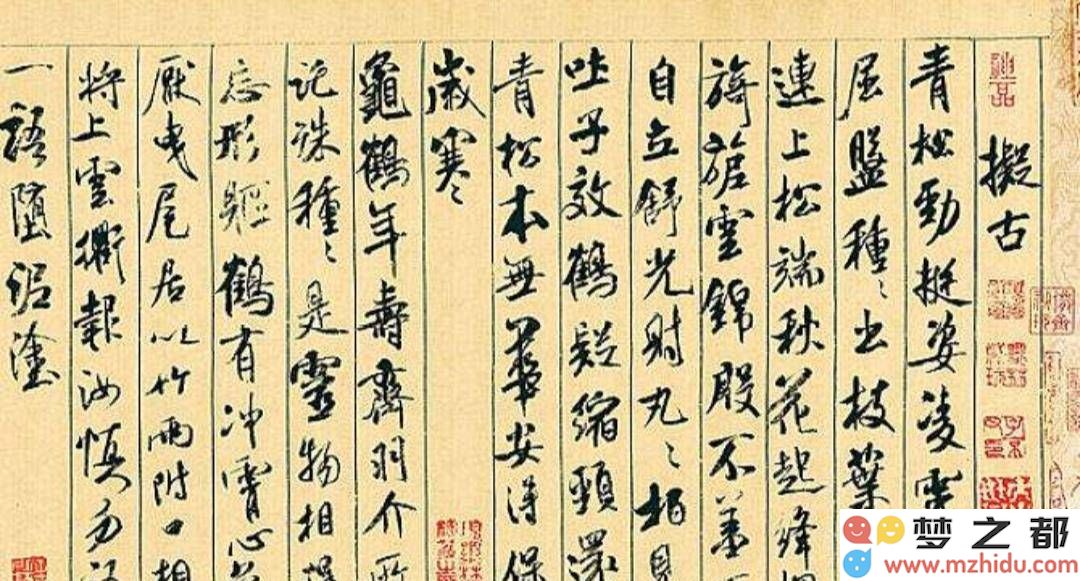 神品
擬古
青松勁挺姿凌霄
屈盤種〻出枝葉
連上松端秋花起絳
旖旎雲錦殷不羞
自立舒光射丸〻柏見
吐子效鶴疑縮頸還
青松本無華安得保
歲寒〻
龜鶴年壽齊羽介所
託殊種〻是靈物相得
忘形軀鶴有沖霄心
厭曳尾居以竹兩附口相
將上雲衢報汝慎勿語
一語墮泥塗
梦之都
www.mzhidu.com